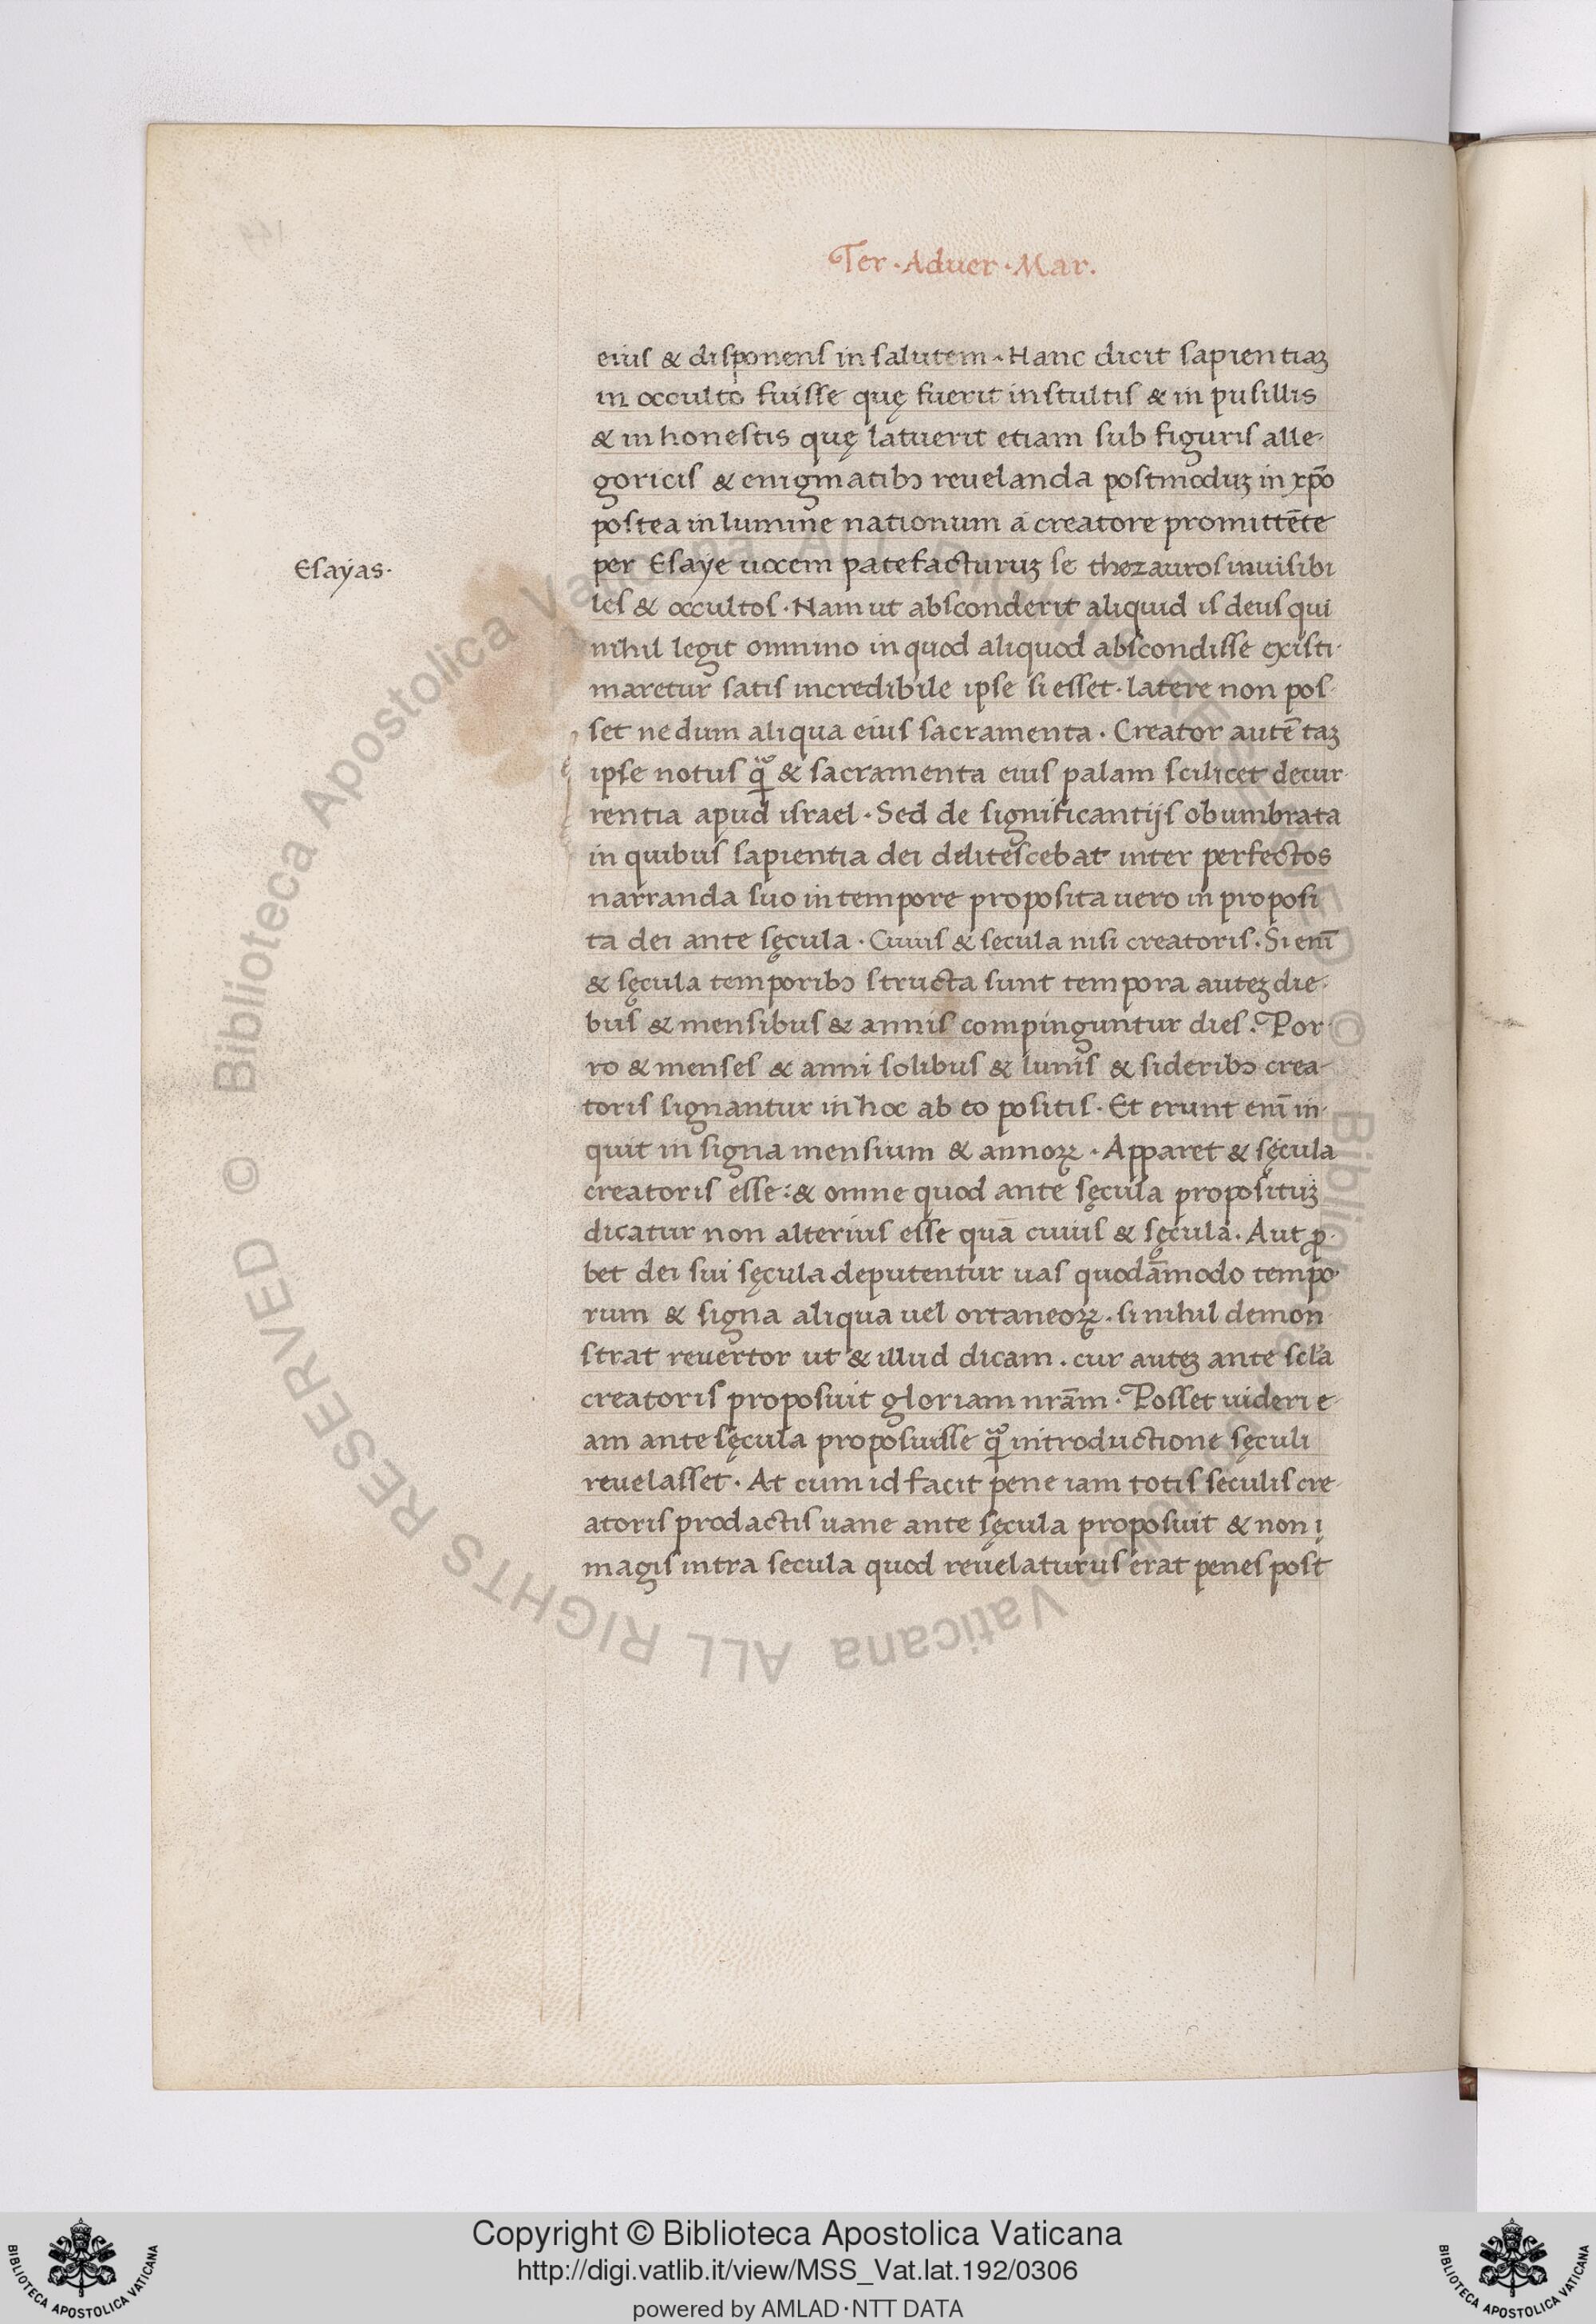 Ter · Aduer · Mar.
eius & disponens in salutem · Hanc dicit sapientiaꝫ
in occulto fuisse quę fuerit in stultis & in pusillis
& inhonestis quę latuerit etiam sub figuris alle-
goricis & enigmatibꝰ reuelanda postmoduꝫ in xp̄o
postea in lumine nationum a creatore promittēte
Esayas·
per Esaye uocem patefacturuꝫ se thezauros inuisibi
les & occultos · Nam ut absconderit aliquid is deus qui
nihil legit omnino in quod aliquod abscondisse existi-
maretur satis incredibile ipse si esset · latere non pos-
set nedum aliqua eius sacramenta · Creator autē taꝫ
ipse notus & sacramenta eius palam scilicet decur-
rentia apud israel · Sed de significantijs obumbrata
in quibus sapientia dei delitescebat inter perfectos
narranda suo in tempore proposita uero in proposi
ta dei ante sęcula · Cuius & secula nisi creatoris · Si enī
& sęcula temporibꝰ structa sunt tempora auteꝫ die-
bus & mensibus & annis compinguntur dies · Por-
ro & menses & anni solibus & lunis & sideribꝰ crea-
toris signantur in hoc ab eo positis · Et erunt enī in-
quit in signa mensium & annoꝝ · Apparet & sęcula
creatoris esse : & omne quod ante sęcula proposituꝫ
dicatur non alterius esse quā cuius & sęcula · Aut ꝓ-
bet dei sui sęcula deputentur uas quodāmodo tempo-
rum & signa aliqua uel ortaneoꝝ · si nihil demon-
strat reuertor ut & illud dicam · cur auteꝫ ante scl'a
creatoris proposuit gloriam nrām · Posset uideri e-
am ante sęcula proposuisse introductione sęculi
reuelasset · At cum id facit pene iam totis seculis cre-
atoris prodactis uane ante sęcula proposuit & non
magis intra secula quod reuelaturus erat penes post
© Biblioteca Apostolica Vaticana ALL RIGHTS RESERVED © Biblioteca Apostolica Vaticana ALL RIGHTS RESERVED
Copyright © Biblioteca Apostolica Vaticana
http://digi.vatlib.it/view/MSS_Vat.lat.192/0306
powered by AMLAD·NTT DATA
BIBLIOTECA APOSTOLICA VATICANA
BIBLIOTECA APOSTOLICA VATICANA